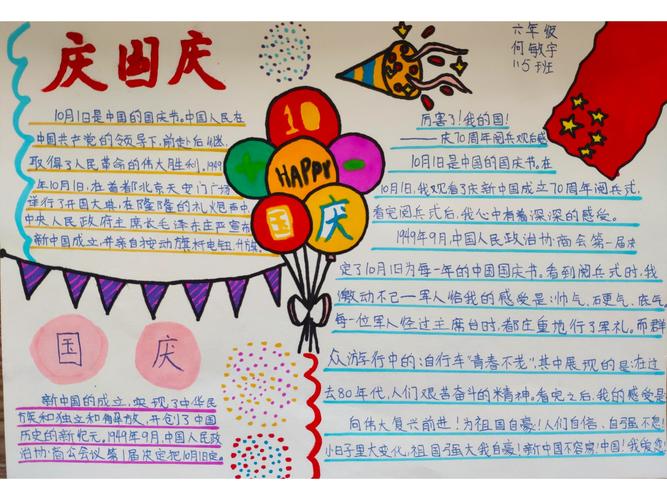 庆国庆
10月1日是中国的国庆节。中国人民在
中国共产党的领导下,前赴后继,
取得了人民革命的伟大胜利。1949
年10月1日,在首都北京天安门广场
举行了开国大典,在隆隆的礼炮声中,
中央人民政府主席长毛泽东庄严宣布
新中国成立,并亲自按动旗杆电钮,升旗
国庆
新中国的成立,实现了中华民
族和独立和解放,开创了中国
历史的新纪元。1949年9月,中国人民政
治协商会议第1届决定把10月1日定。
10
HAPPY
国
庆
六年级
何敏宇
115班
厉害了!我的国!
——庆70周年阅兵观后感
10月1日是中国的国庆节。在
10月1日,我观看了庆新中国成立70周年阅兵式,
看完阅兵式后,我心中有着深深的感受。
1949年9月,中国人民政治协商会第一届决
定了10月1日为每一年的中国国庆节。看到阅兵式时,我
激动不己一军人给我的感受是:帅气。硬气。底气。
每一位军人经过主席台时,都庄重地行了军礼。而群
众游行中的:自行车“青春不老”,其中展现的是:在过
去80年代,人们艰苦奋斗的精神,看完之后,我的感受是
向伟大复兴前进!为祖国自豪!人们自信、自强不息!
小日子里大变化,祖国强大我自豪!新中国不容易!中国!我爱您!